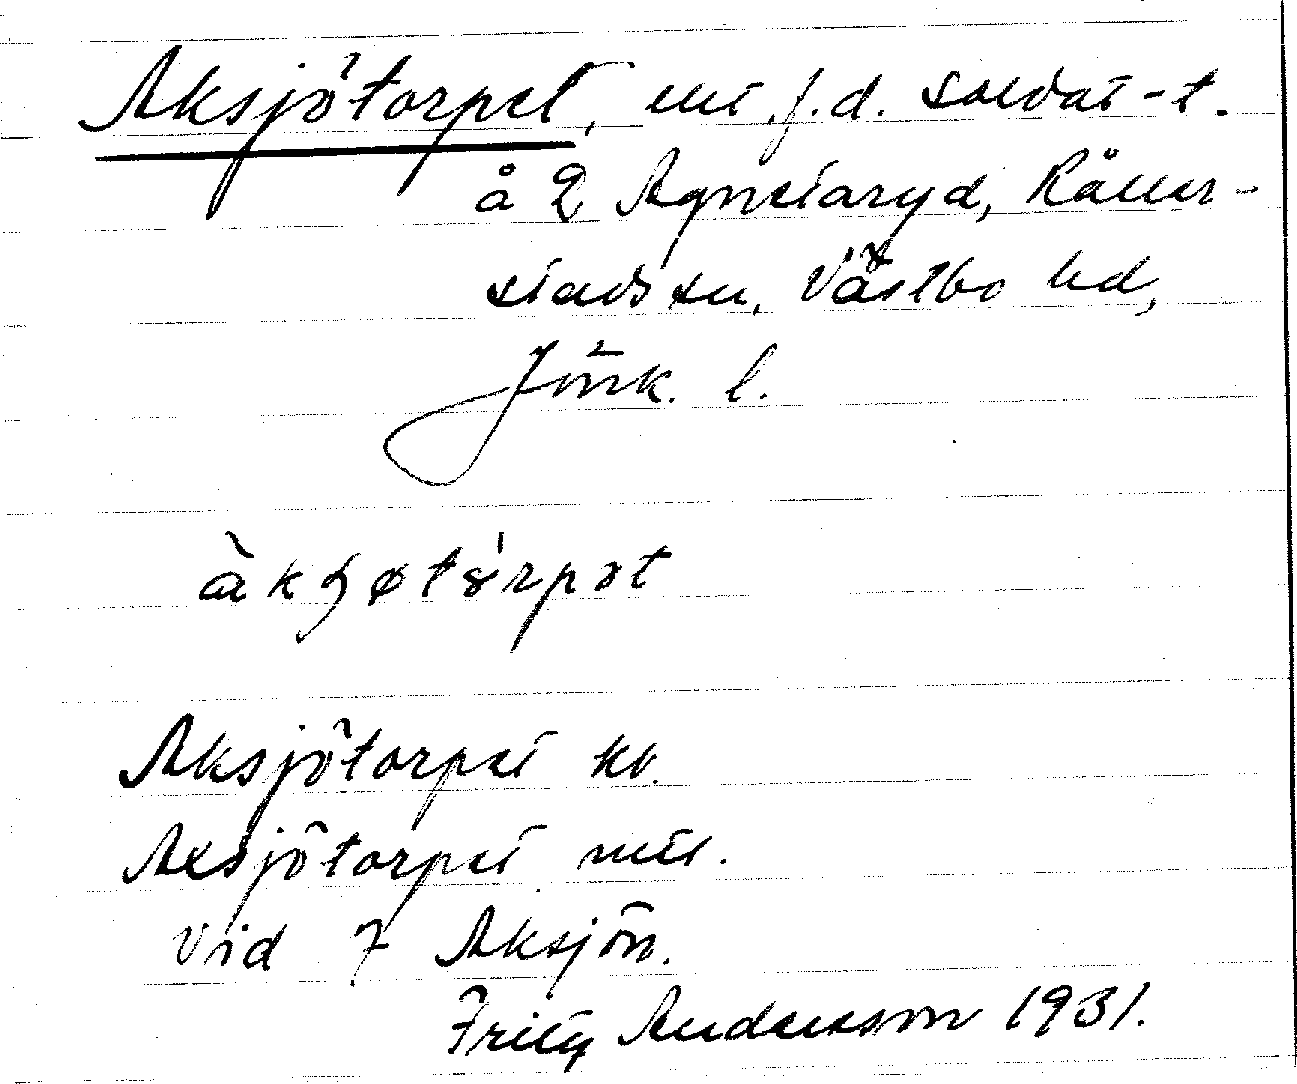 Aksjötorpet, utt. f.d. soldat-t.
å 2 Agnetaryd, Kållerstads sn, Västbo hd,
Jönk. l.
àksjøtórpət
Aksjötorpet kb.
Aksjötorpet mtl.
Vid 7 Aksjön.
Fritz Andersson 1931.